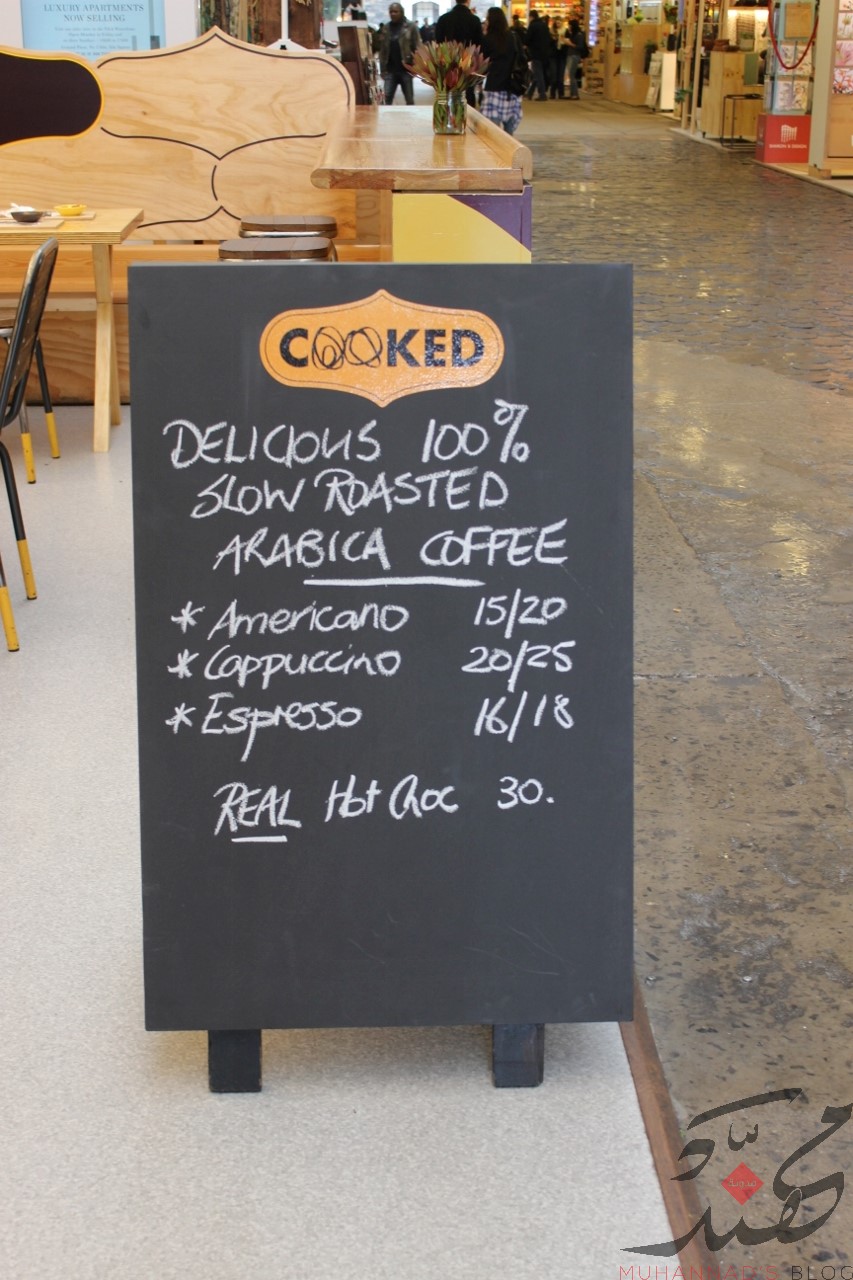 LUXURY APARTMENTS
NOW SELLING
COOKED
DELICIOUS 100%
SLOW ROASTED
ARABICA COFFEE
* Americano 15/20
* Cappuccino 20/25
* Espresso 16/18
REAL Hot Choc 30.
MUHANNAD'S BLOG